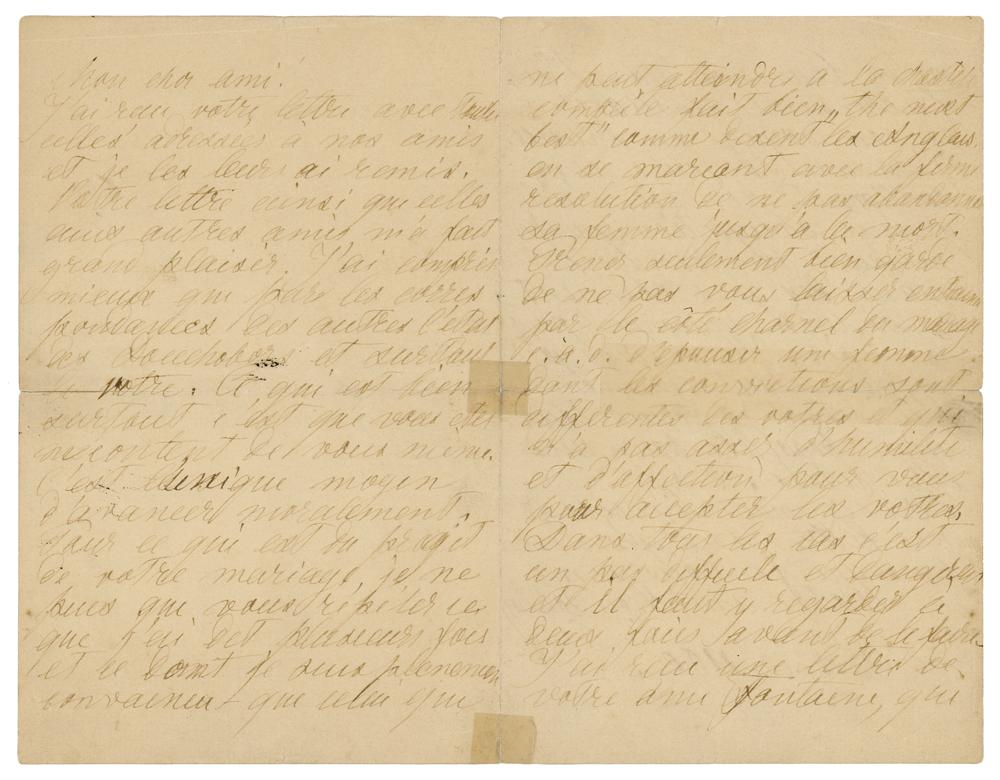 Mon cher ami!
J'ai reçu votre lettre avec toutes
celles adressées à nos amis
et je les leurs ai remis.
Votre lettre ainsi que celles
aux autres amis m'a fait
grand plaisir. J'ai compris
mieux que par les corres
pondances des autres l'état
des Doukhobors et surtout
le votre. Ce qui est bien
surtout c'est que vous êtes
mecontent de vous même.
C'est l'unique moyen
d'avancer moralement.
Pour ce qui est du projet
de votre mariage, je ne
puis que vous répéter ce
que j'ai dit plusieurs fois
et ce dont je suis pleinement
convaincu – que celui qui
ne peut atteindre à la chasteté
complète fait bien „the next
best" comme disent les Anglais,
en se mariant avec la ferme
resolution de ne pas abandonner
sa femme jusqu'à la mort.
Prenez seulement bien garde
de ne pas vous laisser entrainer
par le côté charnel du mariage
c.à.d. d'épouser une femme
dont les convictions sont
differentes des votres et qui
n'a pas assez d'humilité
et d'affection pour vous
pour accepter les votres.
Dans tous les cas c'est
un pas difficile et dangereux
et il faut y regarder à
deux fois avant de le faire.
J'ai reçu une lettre de
votre ami Fontaine, qui